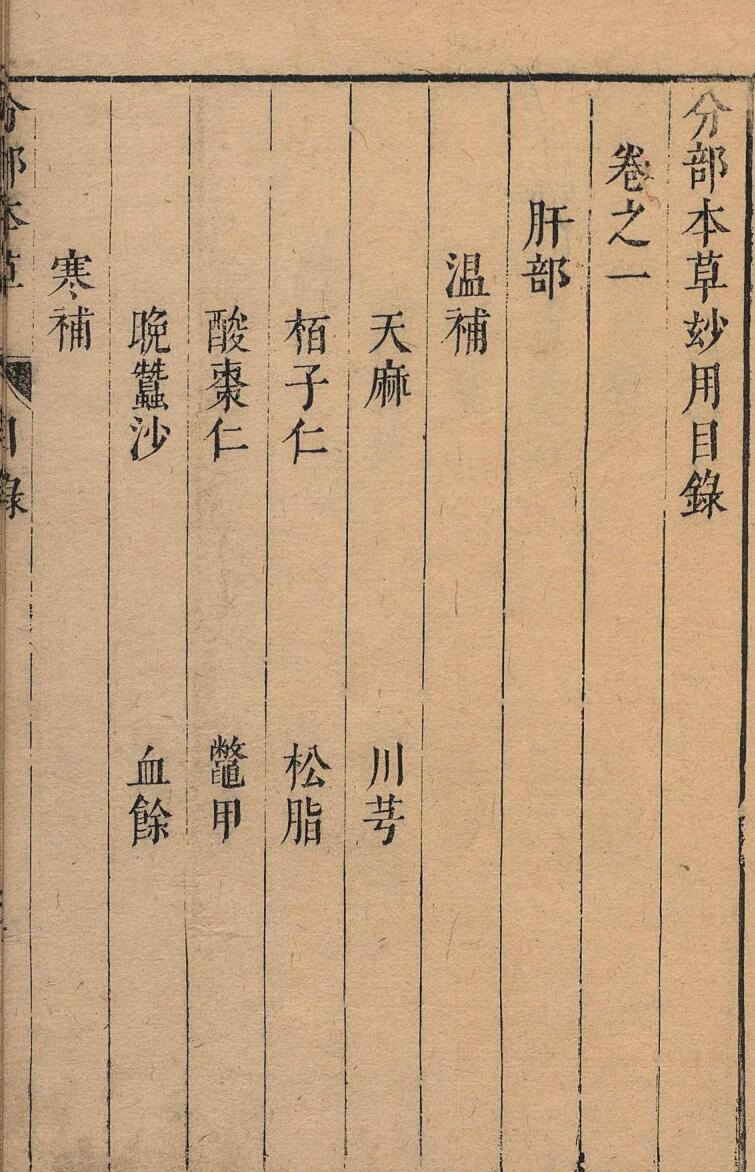 分部本草玅用目錄
卷之一
肝部
温補
天麻 川芎
栢子仁 松脂
酸棗仁 鼈甲
晚蠶沙 血餘
寒補
分部本草 目錄